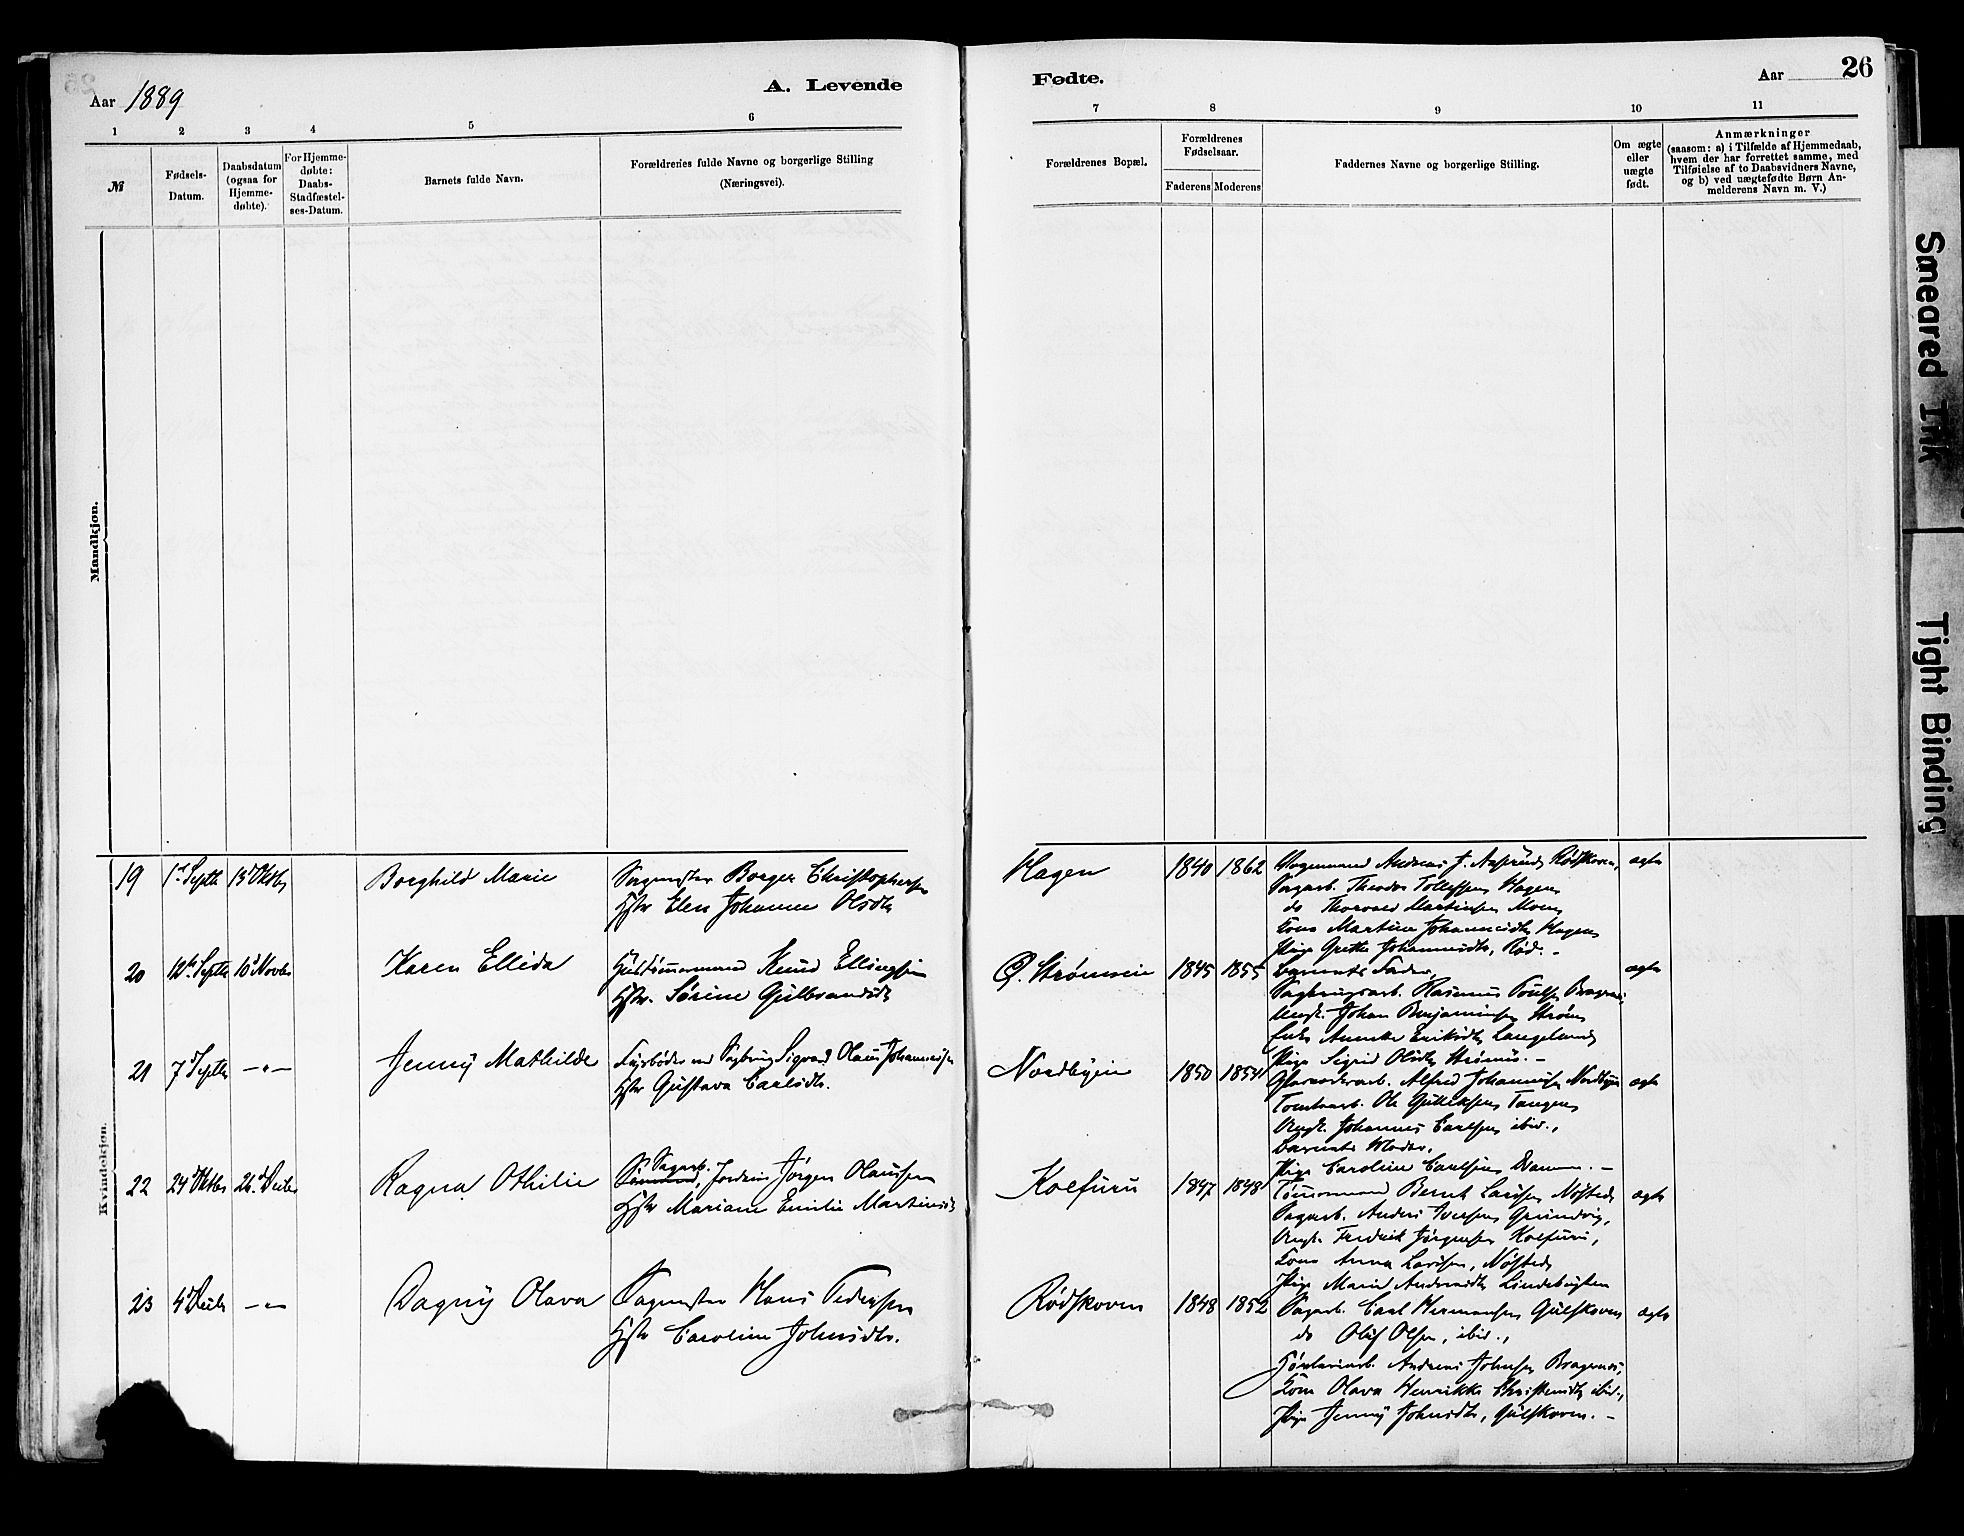 26
Aar 1889
A. Levende
Fødte.
Aar
1 2 3 4 5 6 7 8 9 10 11
№
Fødsels-
Datum.
Daabsdatum
(ogsaa for
Hjemme-
døbte).
For Hjemme-
døbte:
Daabs-
Stadfæstel-
ses-Datum.
Barnets fulde Navn.
Forældrenes fulde Navne og borgerlige Stilling
(Næringsvei).
Forældrenes Bopæl.
Forældrenes
Fødselsaar.
Faderens Moderens
Faddernes Navne og borgerlige Stilling.
Om ægte
eller
uægte
født.
Anmærkninger
(saasom: a) i Tilfælde af Hjemmedaab,
hvem der har forrettet samme, med
Tilføielse af to Daabsvidners Navne,
og b) ved uægtefødte Børn An-
melderens Navn m. V.)
Mandkjøn.
Kvindekjøn.
19 1ste Septb 13de Oktbr Borghild Marie
Sagmester Borger Christophersen
Hstr Elen Johanne Olsdtr
Hagen 1840 1862 ægte
Andreas J. Rødskoven,
Sagarb. Theodor Tollefsen Hagen
do Thorvald Martinsen Moen
Kone Martine Johannesdtr Hagen
Pige Grethe Johannesdtr, Rød. -
20 12te Septb 10de Novbr Karen Ellida
Hustømmermand Knud Ellingsen
Hstr. Sørine Gulbrandsdtr
Ø. Strømmen 1845 1855 ægte
Barnets Fader,
Rasmus Poulsen Bragernes,
Ungk. Johan Benjaminsen Strøm
Enke Anneke Eriksdtr Langeland
Pige Sigrid Olsdtr -
21 7de Septb -"- Jenny Mathilde
Fyrbøder ved Sagbrug Sigvard Olaus Johannesen
Hstr Gustava Carlsdtr.
Nordbyen 1850 1854 ægte
Alfred Johannesen Nordbyen
Tomtearb. Ole Gulliksen Tangen
Ungk. Johannes Carlsen ibid.,
Barnets Moder,
Pige Caroline Carlsen -
22 24de Oktbr 26de Decbr Ragna Othilie
Sagarb. Jørgen Olaussen
Hstr Mariane Emilie Martinsdtr
Kolfuru 1847 1848 ægte
Tømmermand Bernt Larsen Nøsted
Sagarb. Anders Iversen Grundvig,
Ungk. Fredrik Jørgensen Kolfuru,
Kone Anna Larsen, Nøsted
Pige Marie Andersdtr
23 4de Decbr -"- Dagny Olava
Sagmester Hans Pedersen
Hstr Caroline Johnsdtr.
Rødskoven 1848 1852 ægte
Sagarb. Carl Hermansen Gulskoven
do Oluf Olsen, ibid.,
Andreas Johnsen Bragernes,
Kone Olava Henrikke Christensdtr ibid.,
Pige Jenny Johnsdtr, Gulskoven. -
Smeared Ink
Tight Binding